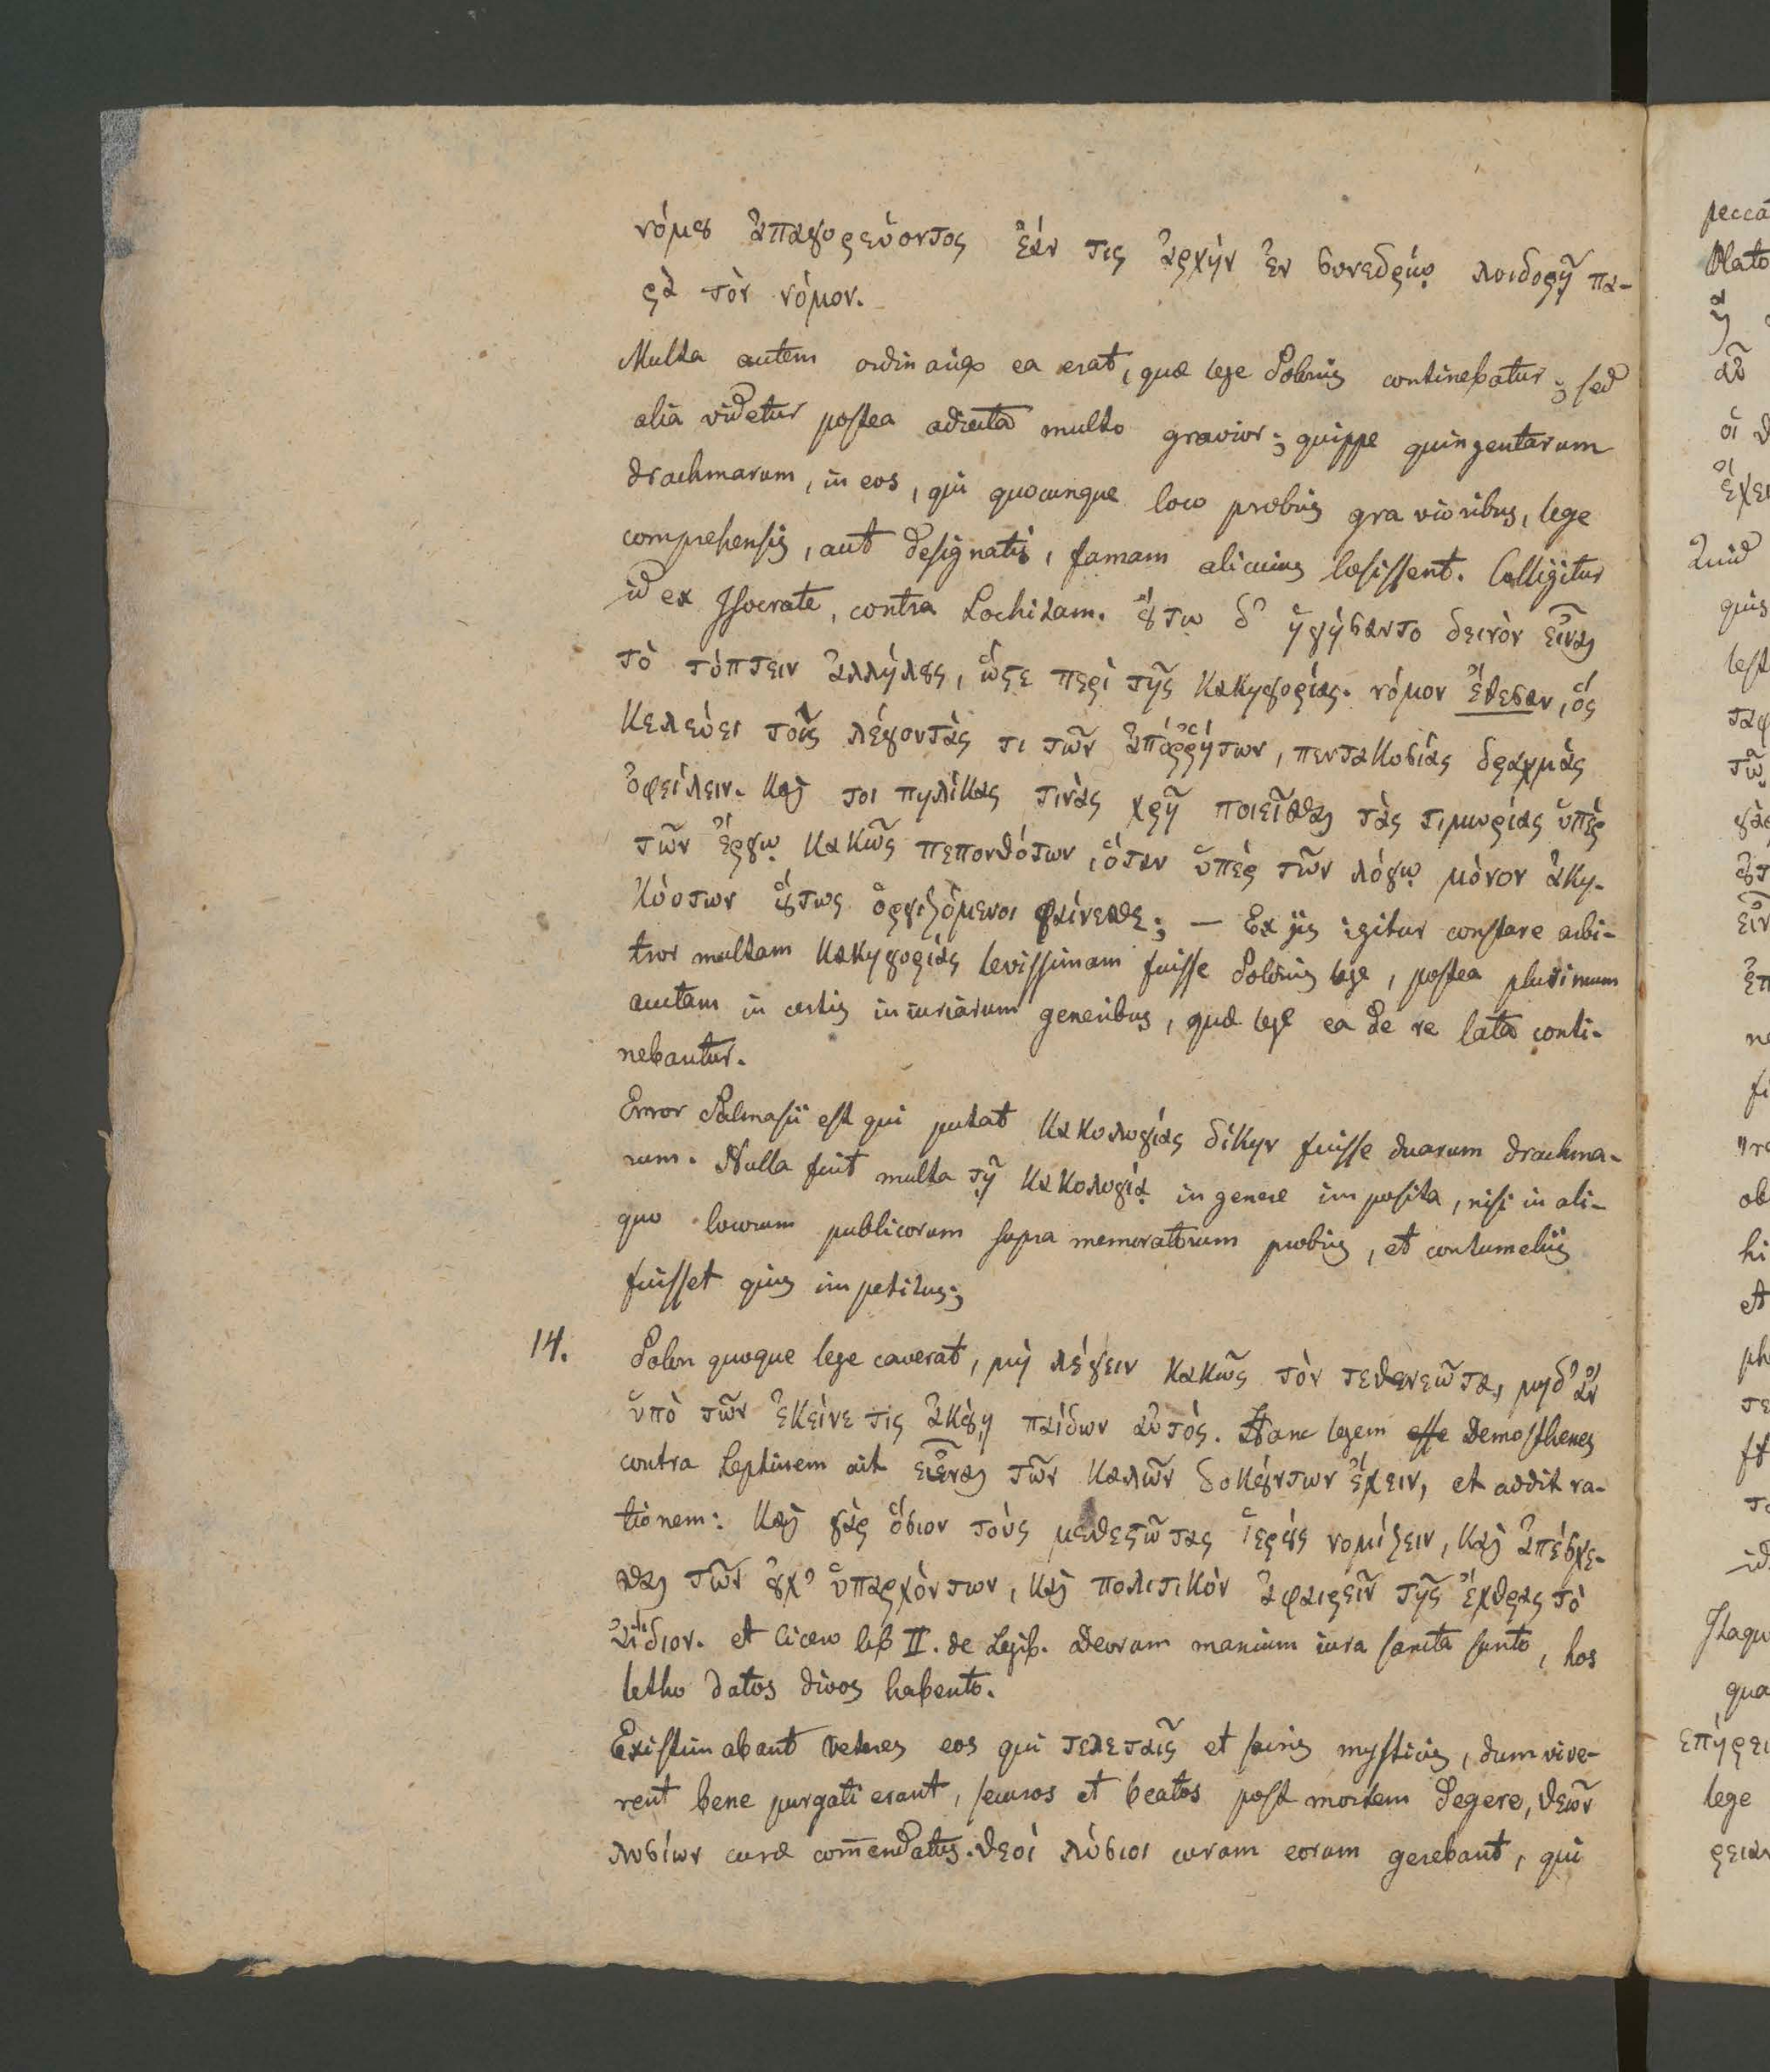 νόμου ἀπαγορεύοντος ἐάν τις ἀρχὴν ἐν συνεδρίῳ λοιδορῇ πα-
ρὰ τὸν νόμον.
Multa autem ordinario ea erat, quæ lege Solonis continebatur; sed
alia videtur postea adiecta multo gravior; quippe quingentarum
drachmarum, in eos, qui quocunque loco probris gravioribus, lege
comprehensis, aut designatis, famam alicuius læsissent. Colligitur
id ex Isocrate, contra Lochitam. ούτω δ' ἡγήσαντο δεινὸν εἶναι
τὸ τύπτειν ἀλλήλους, ὥστε περὶ τῆς κακηγορίας νόμον ἔθεσαν, ὅς
κελεύει τοῖς λέγοντάς τι τῶν ἀπόῤῥήτων, πεντακοσίας δραχμὰς
ὀφείλειν. καί τοι πηλίκας τινὰς χρῆ ποιεῖσθαι τὰς τιμωρίας ὑπὲρ
τῶν ἔργῳ κακῶς πεπονθότων, ὅταν ὑπὲρ τῶν λόγῳ μόνον ἀκη-
κόοτων ούτως ὀργιζόμενοι φαίνεσθε; — Ex iis igitur constare arbi-
tror multam κακηγορίας levissimam fuisse Solonis lege, postea plurimum
auctam in certis iniuriarum generibus, quæ lege ea de re lata conti-
nebantur.
Error Salmasii est qui putat κακολογίας δίκην fuisse duarum drachma-
rum. Nulla fuit multa τῇ κακολογίᾳ in genere imposita, nisi in ali-
quo locorum publicorum supra memoratorum probris, et contumeliis
fuisset quis impetitus;
14. Solon quoque lege caverat, μὴ λέγειν κακῶς τὸν τεθενεῶτα, μηδ' ἂν
ὑπὸ τῶν ἐκείνε τις ἀκούῃ παίδων αὐτός. Hanc legem esse Demosthenes
contra Leptinem ait εἶναι τῶν καλῶν δοκούντων ἔχειν, et addit ra-
tionem: καὶ γὰρ ὅσιον τοὺς μεθεστῶτας ἱεροὺς νομίζειν, καὶ ἀπέσχε-
σθαι τῶν οὐχ' ὑπαρχόντων, καὶ πολιτικὸν ἀφαιρεῖν τῆς ἔχθρας τὸ
ἀΐδιον. et Cicero lib II. de Legib. Deorum manium iura sancta sunto, hos
letho datos divos habento.
Existimabant veteres eos qui τελεταῖς et sacris mysticis, dum vive-
rent bene purgati erant, securos et beatos post mortem degere, θεῶν
λυσίων curæ com̄endatus. θεοί λύσιοι curam eorum gerebant, qui